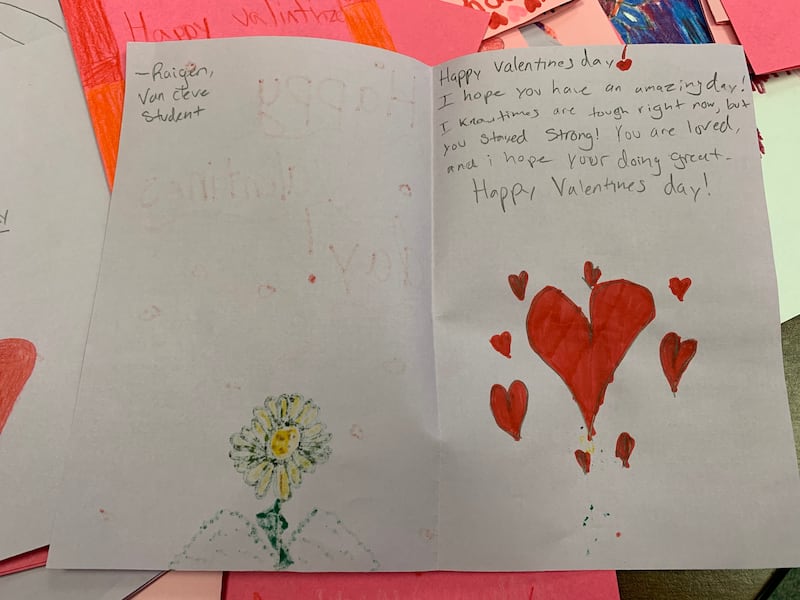 Happy valintine
—Raigen,
Van cleve
Student
Happy
Valentines
day!
Happy Valentines day
I hope you have an amazing day!
I know times are tough right now, but
you stayed strong! You are loved,
and i hope your doing great.
Happy Valentines day!